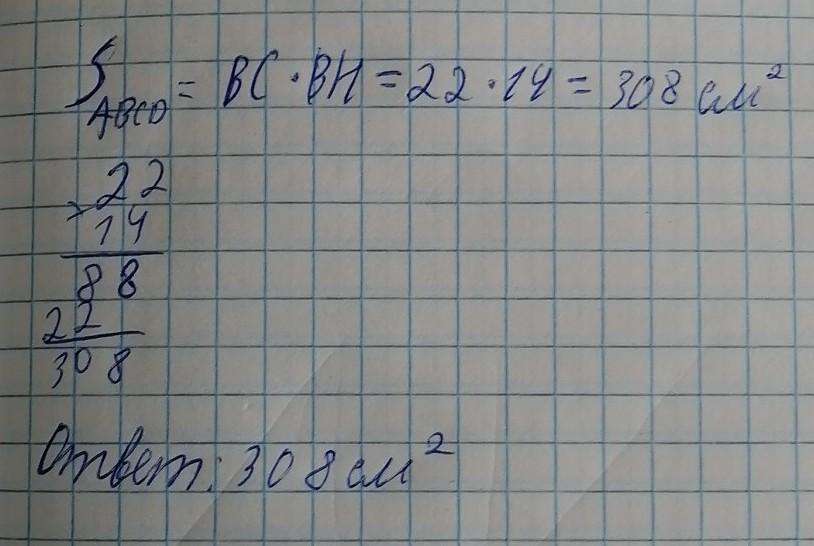 S ABCD = BC · BH = 22 · 14 = 308 см²
22
× 14
88
22
308
Ответ: 308 см²